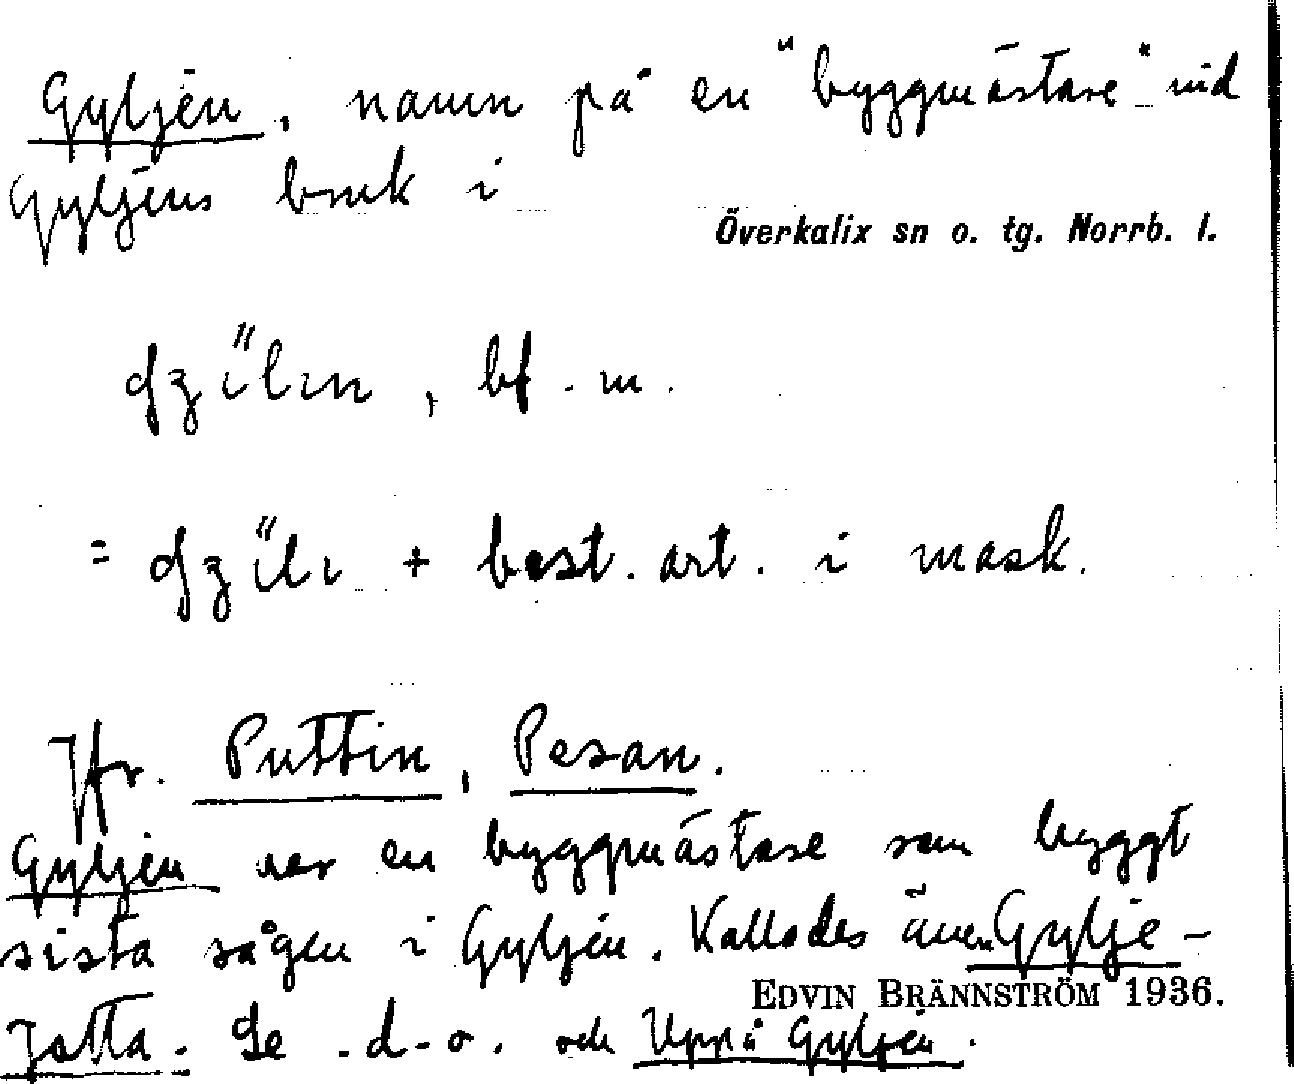 Gyljén, namn på en "byggmästare" vid
Gyljéns bruk i
Överkalix sn o. tg. Norrb. l.
, bf. m.
= + best. art. i mask.
Jfr. Puttin, Pesan.
Gyljén var en byggmästare som byggt
sista sågen i Gyljén. Kallades även Gylje-
EDVIN BRÄNNSTRÖM 1936.
Jatta. Se d.o. och Uppi Gyljén.